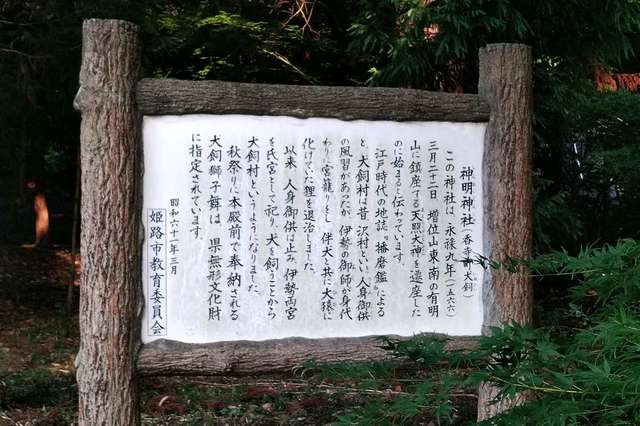 神明神社(香寺町犬飼)
この神社は、永禄九年(一五六六)
三月二十二日、増位山東南の有明
山に鎮座する天照大神を遷座した
のに始まると伝わっています。
江戸時代の地誌“播磨鑑”による
と、犬飼村は昔、沢村といい、人身御供
の風習があったが、伊勢の御師が身代
わりに宮籠りをし、伴犬と共に大猿に
化けていた狸を退治しました。
以来、人身御供は止み、伊勢両宮
を氏宮として祀り、犬を飼うことから
犬飼村というようになりました。
秋祭りに本殿前で奉納される
犬飼獅子舞は、県無形文化財
に指定されています。
昭和六十一年三月
姫路市教育委員会